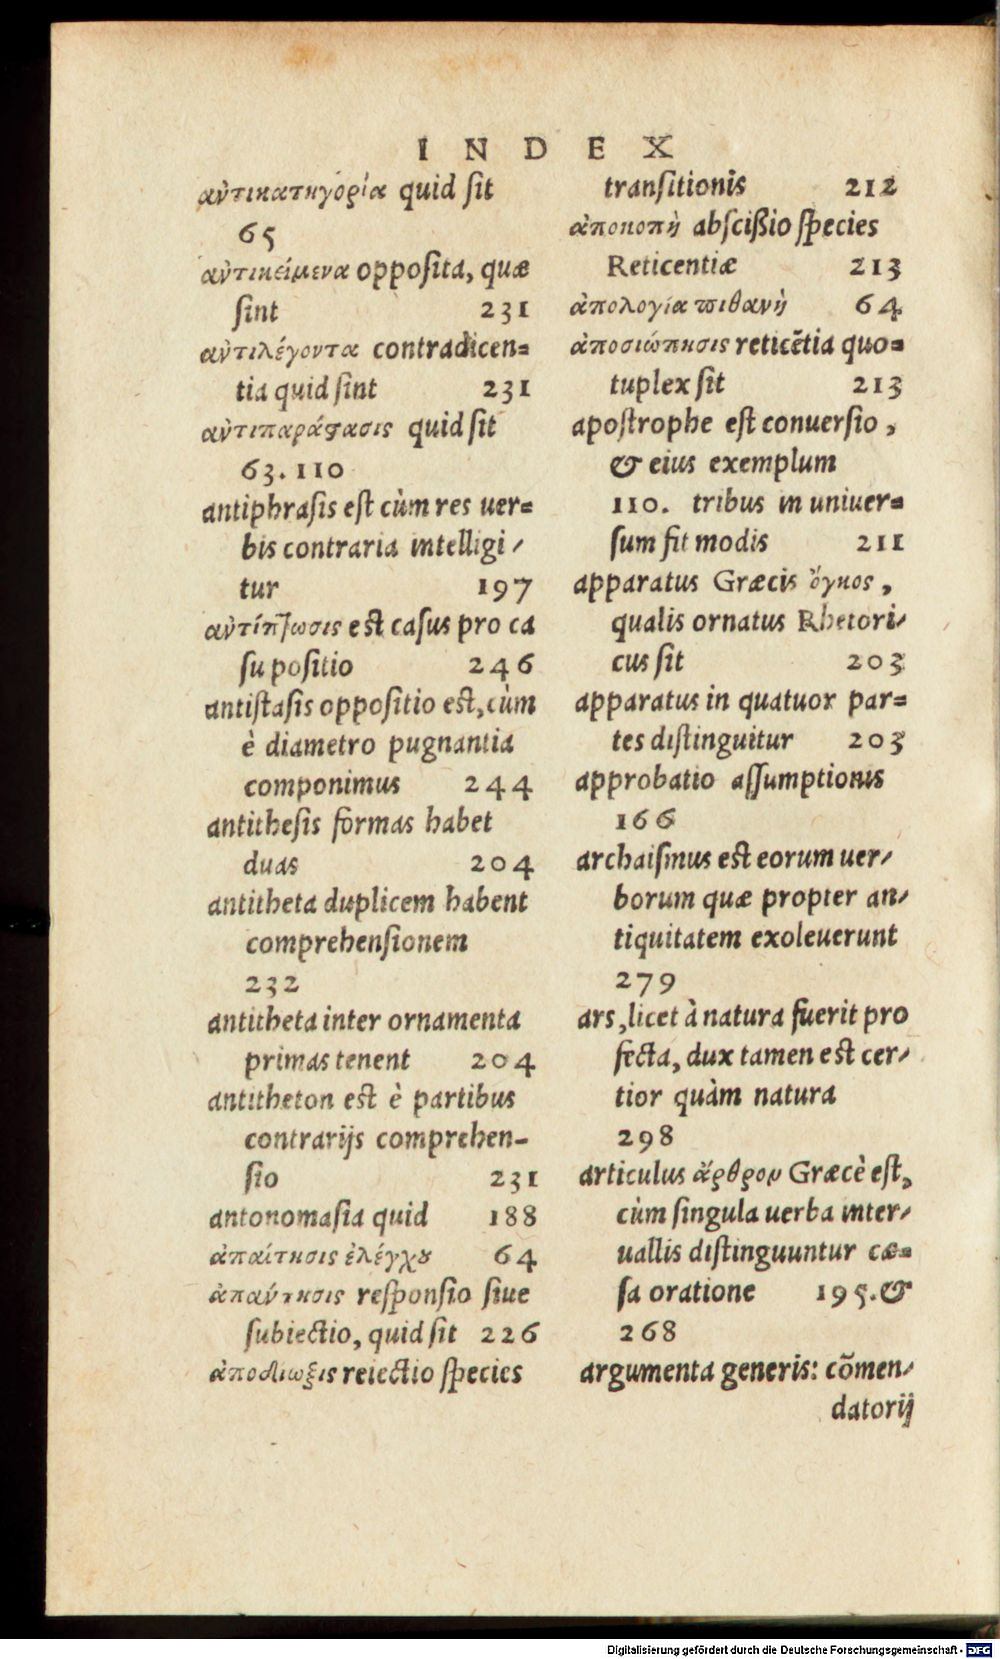 INDEX
ἀντικατηγορία quid ſit
65
ἀντικείμενα oppoſita, quæ
ſint 231
ἀντιλέγοντα contradicen=
tia quid ſint 231
ἀντιπαράϛασις quid ſit
63. 110
antiphraſis eſt cùm res uer=
bis contraria intelligi/
tur 197
ἀντίπτωσις eſt caſus pro ca
ſu poſitio 246
antiſtaſis oppoſitio eſt, cùm
è diametro pugnantia
componimus 244
antitheſis formas habet
duas 204
antitheta duplicem habent
comprehenſionem
232
antitheta inter ornamenta
primas tenent 204
antitheton eſt è partibus
contrarijs comprehen-
ſio 231
antonomaſia quid 188
ἀπαίτησις ἐλέγχȣ 64
ἀπαύτησις reſponſio ſiue
subiectio, quid ſit 226
ἀποδίωξις reiectio ſpecies
tranſitionis 212
ἀποκοπὴ abſcißio ſpecies
Reticentiæ 213
ἀπολογία πιθανὴ 64
ἀποσιώπησις reticẽtia quo=
tuplex ſit 213
apoſtrophe eſt conuerſio,
& eius exemplum
110. tribus in uniuer=
ſum fit modis 211
apparatus Græcis ὄγκος,
qualis ornatus Rhetori/
cus ſit 203
apparatus in quatuor par=
tes diſtinguitur 203
approbatio aſſumptionis
166
archaiſmus eſt eorum uer/
borum quæ propter an/
tiquitatem exoleuerunt
279
ars, licet à natura fuerit pro
fecta, dux tamen eſt cer/
tior quàm natura
298
articulus ἄρθρον Græcè eſt,
cùm ſingula uerba inter/
uallis diſtinguuntur cæ=
ſa oratione 195. &
268
argumenta generis: cõmen/
datorij
Digitalisierung gefördert durch die Deutsche Forschungsgemeinschaft - DFG